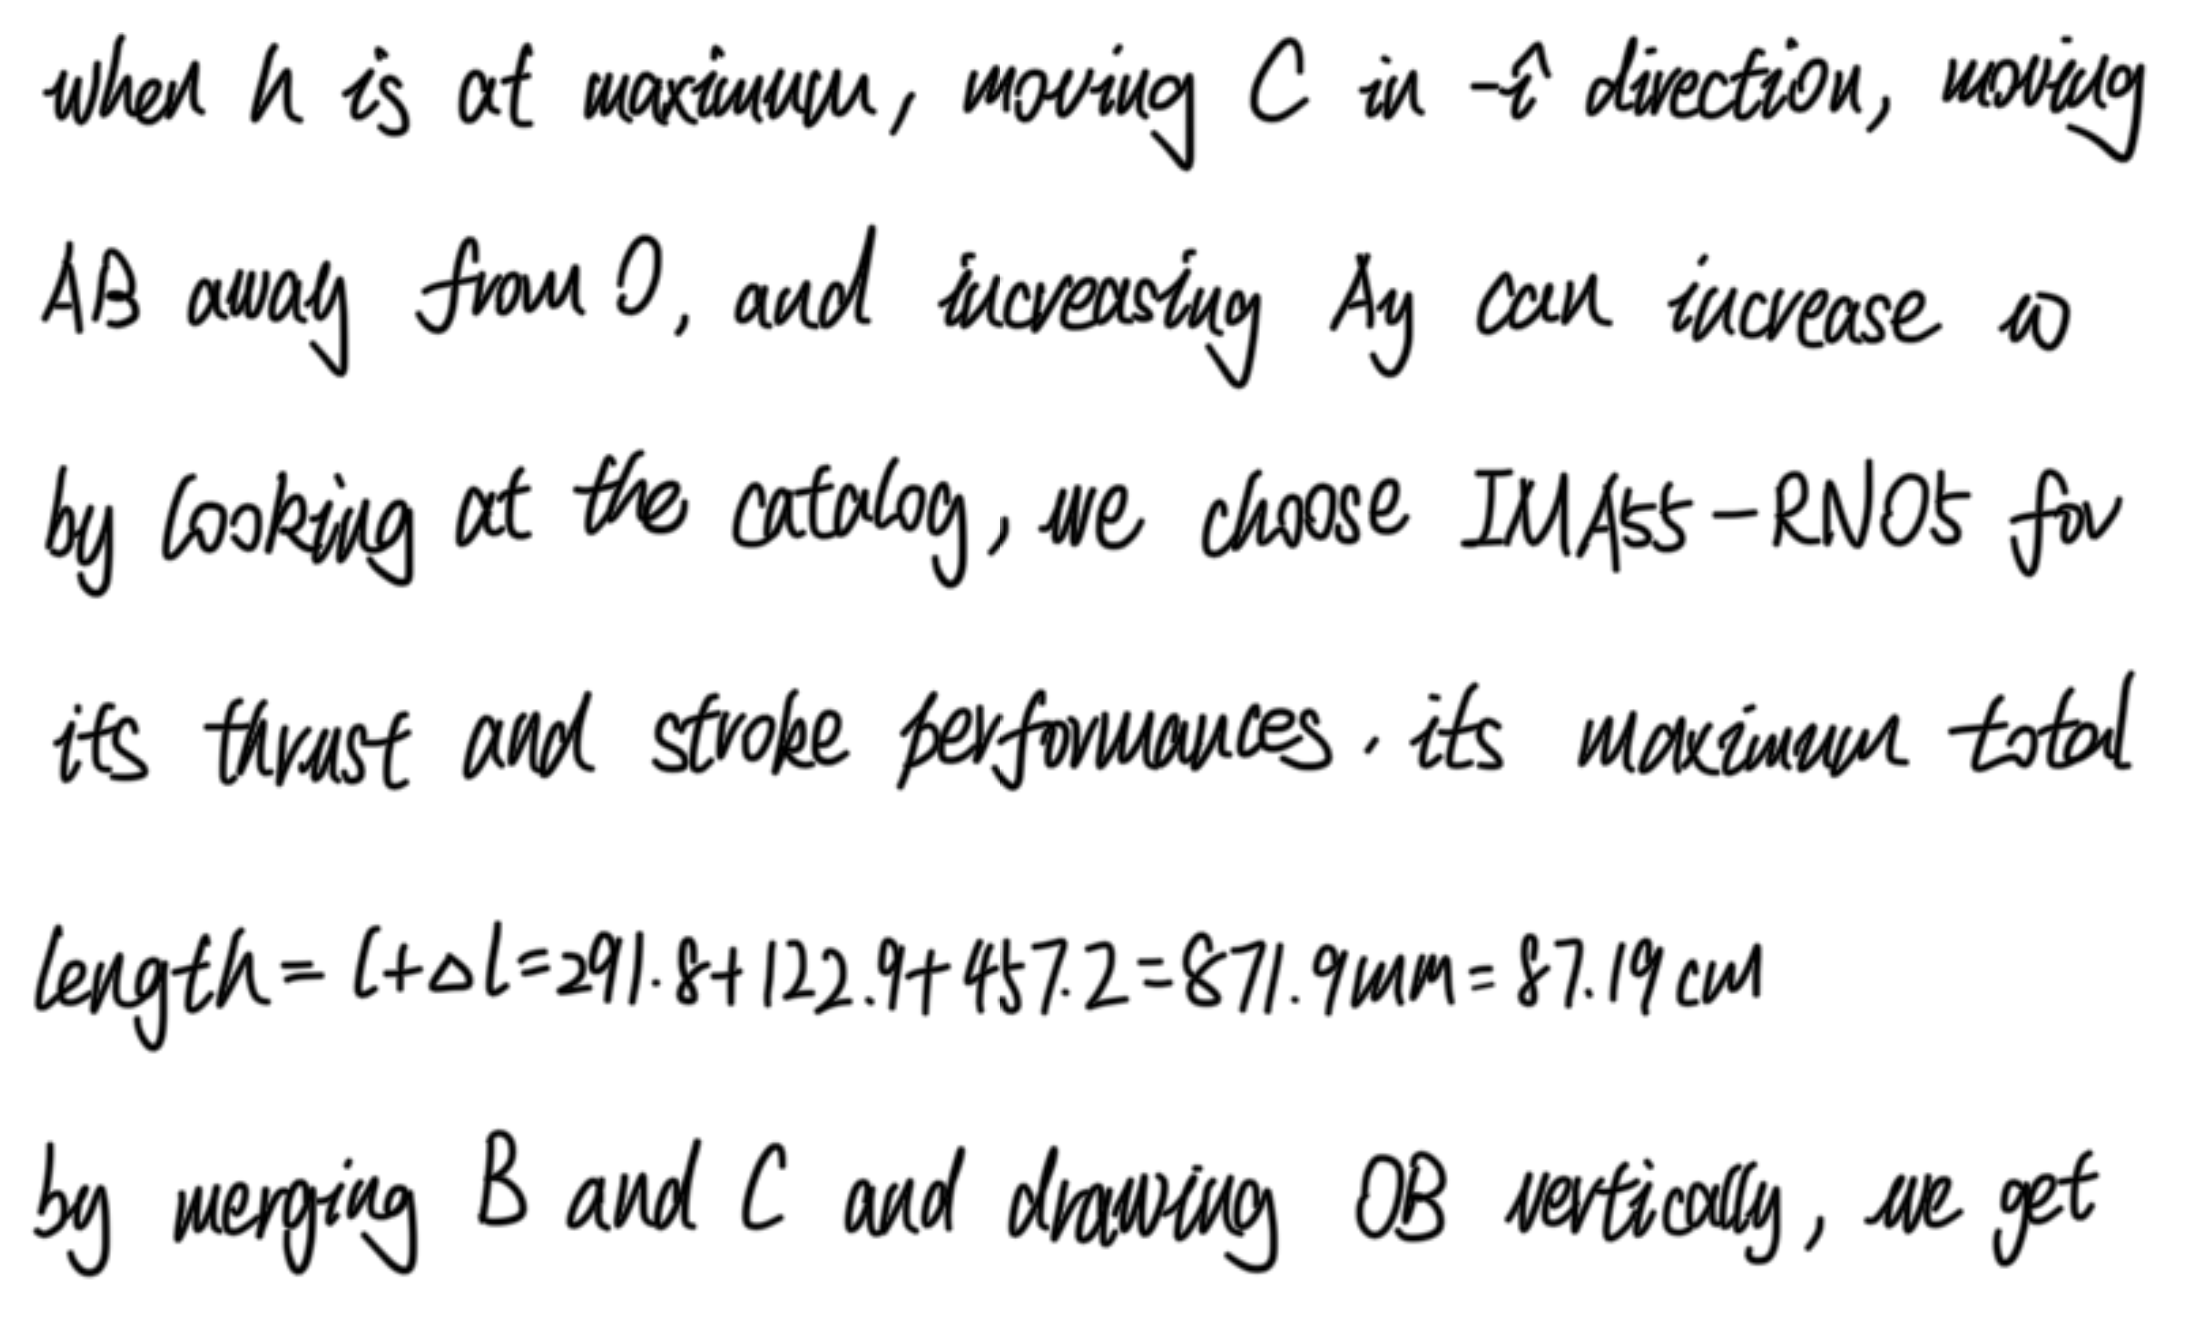 when h is at maximum, moving C in -î direction, moving
AB away from O, and increasing Ay can increase w
by looking at the catalog, we choose IMA55-RN05 for
its thrust and stroke performances. its maximum total
length = l+△l=291.8+122.9+457.2=871.9mm=87.19cm
by merging B and C and drawing OB vertically, we get